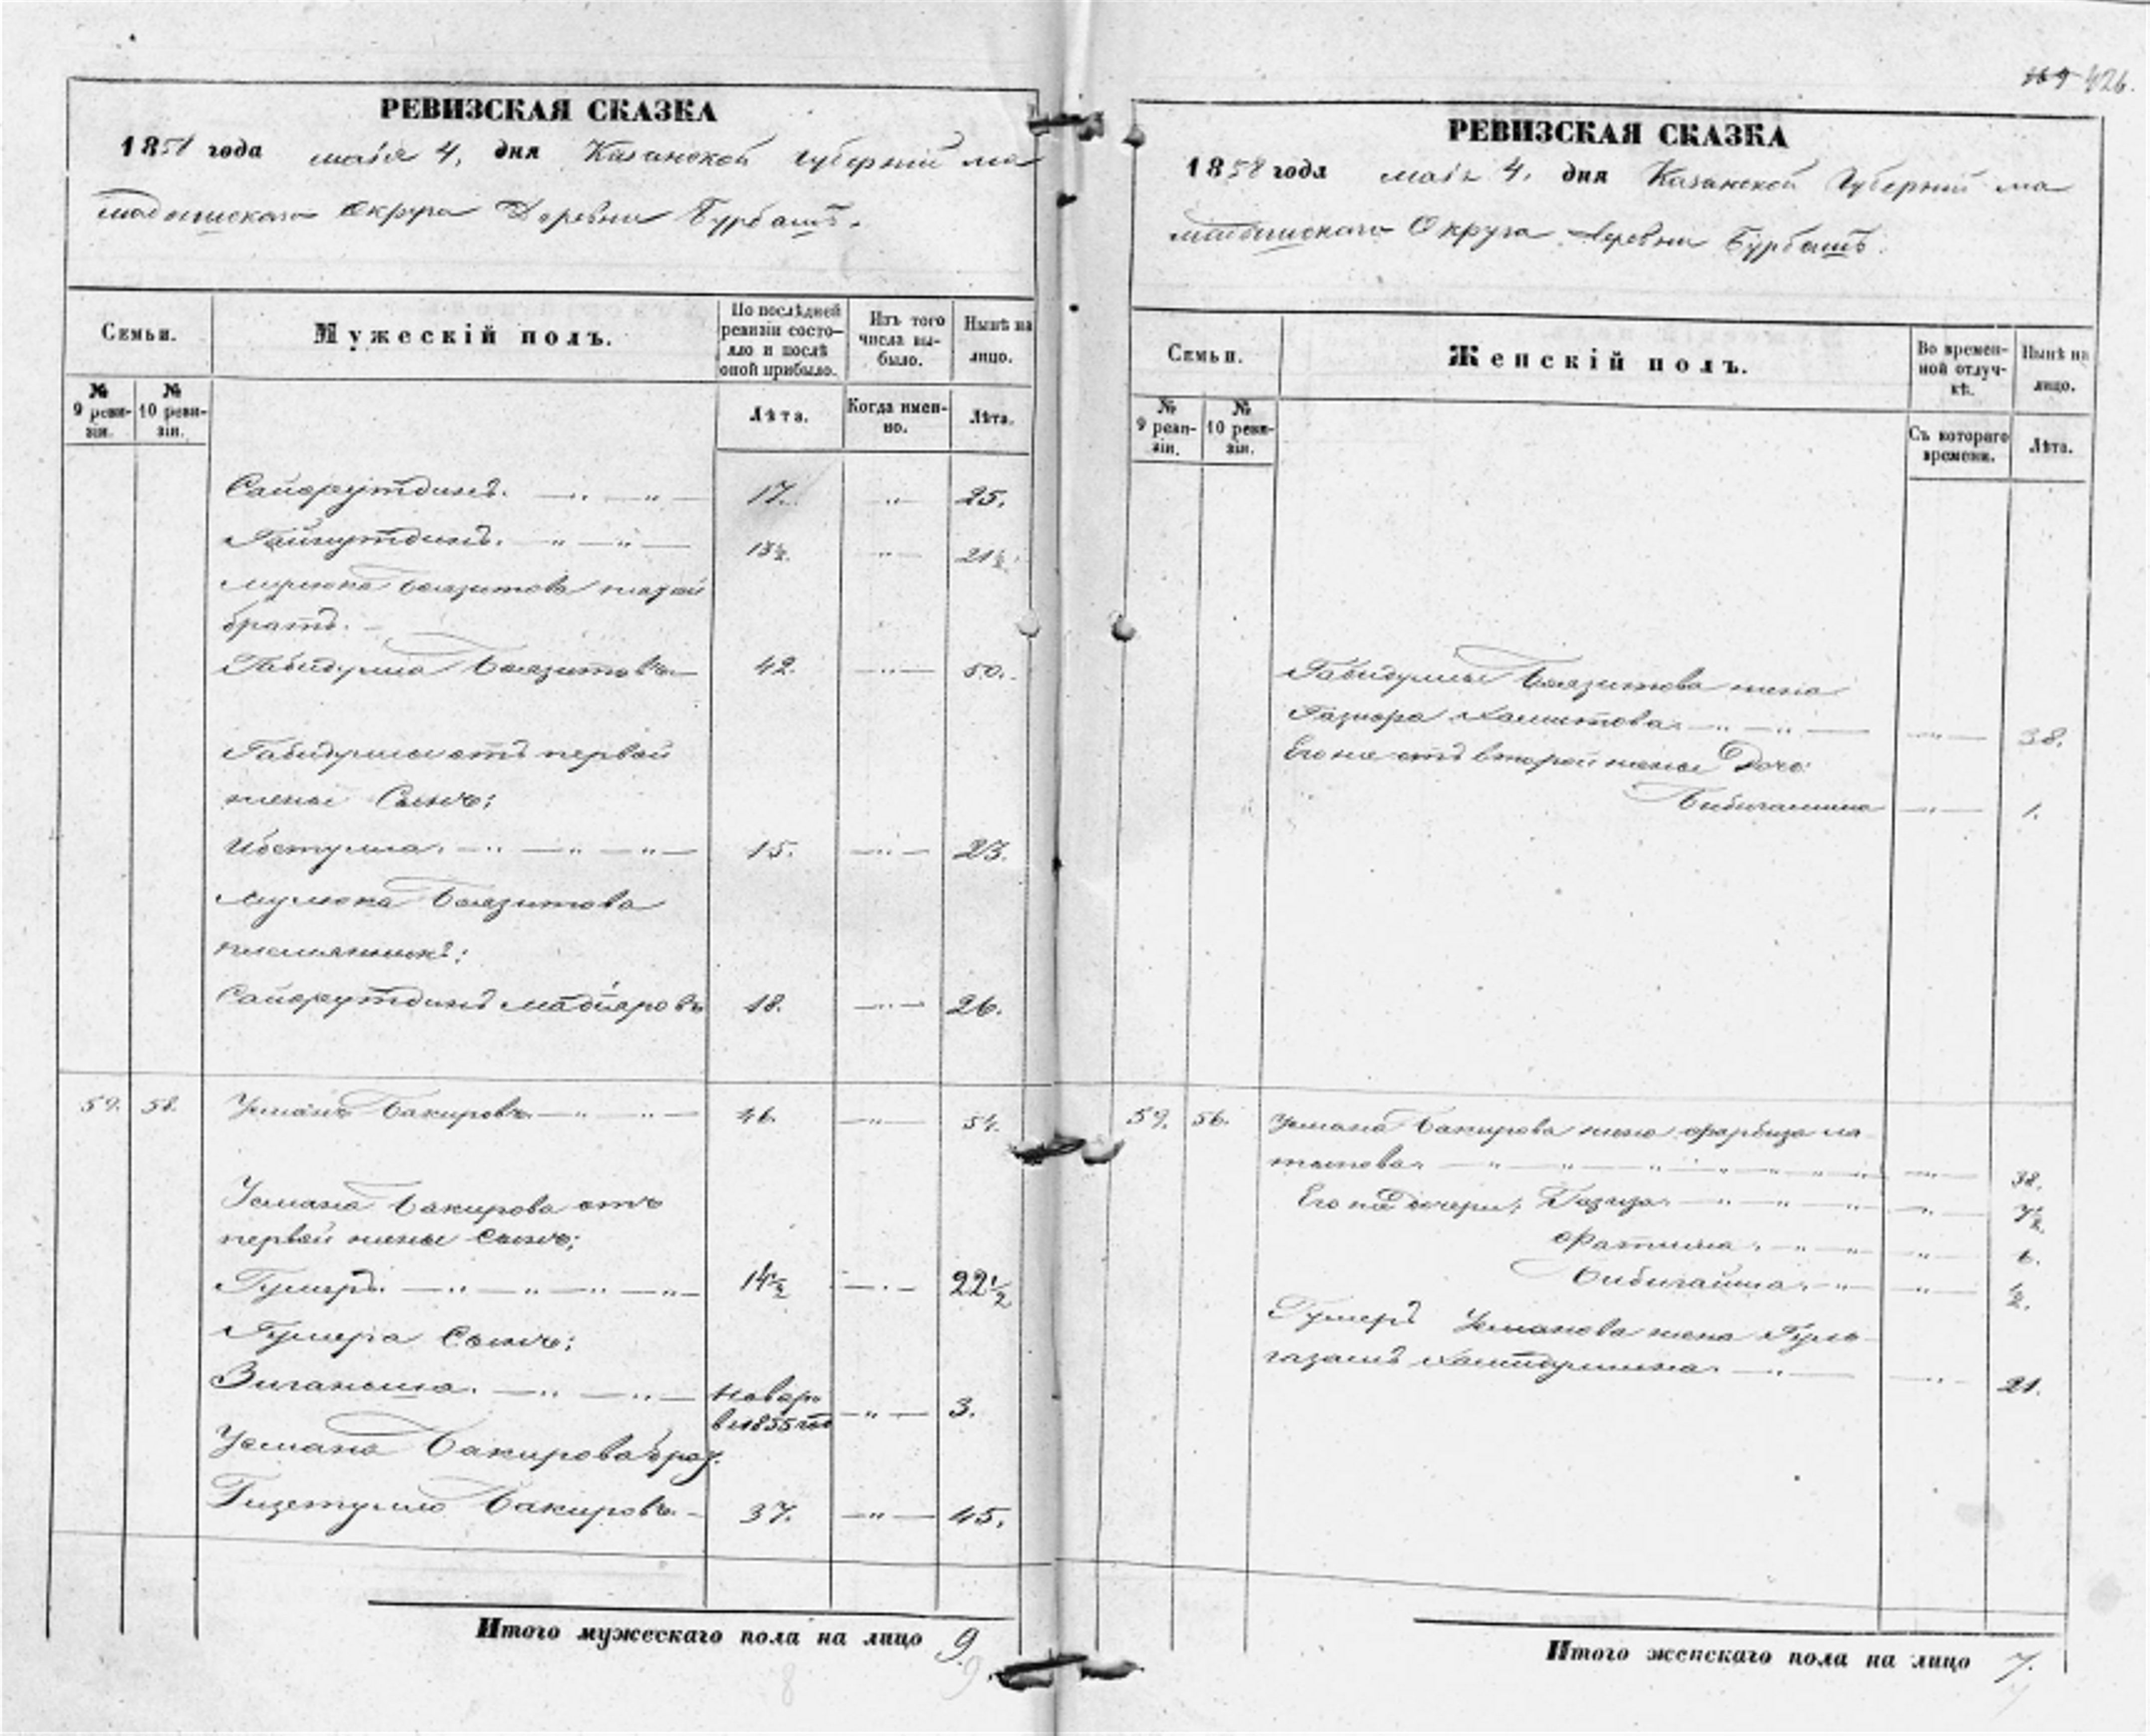 426.
РЕВИЗСКАЯ СКАЗКА
1858 года маія 4. дня Казанской Губерніи Ма
мадышскаго Округа Деревни Бурбашъ.
Семьи.
Мужескій полъ.
По послѣдней ревизіи состо-
яло и послѣ
оной прибыло.
Изъ того
числа вы-
было.
Нынѣ на
лицо.
№
9 реви-
зіи.
№
10 реви-
зіи.
Лѣта.
Когда имен-
но.
Лѣта.
Сайфутдинъ. 17. 25.
Гайнутдинъ. 13½. 21½.
Мулюка Баязитова
братъ.
Габидулла Баязитовъ 42. 50.
Габидуллы отъ первой
жены Сынъ;
15. 23.
Мулюка Баязитова
племянникъ;
Сайфутдинъ Мадіяровъ 18. 26.
59. 58. Усманъ Бакировъ 46. 54.
Усмана Бакирова отъ
первой жены сынъ;
Гумеръ. 14½ 22½
Гумера Сынъ;
Зиганша. 3.
въ 1855
Усмана Бакирова брат.
Бакировъ 37. 45.
Итого мужескаго пола на лицо 9.
РЕВИЗСКАЯ СКАЗКА
1858 года маія 4. дня Казанской Губерніи Ма
мадышскаго Округа Деревни Бурбашъ.
Семьи.
Женскій полъ.
Во времен-
ной отлуч-
кѣ.
Нынѣ на
лицо.
№
9 реви-
зіи.
№
10 реви-
зіи.
Съ котораго
времени.
Лѣта.
Габидуллы Баязитова жена
Хамитова 38.
Его же отъ второй жены Дочь
1.
59. 56. Усмана Бакирова жена
38.
Его же дочери; Газиза 7½
Фатыма. 6.
½.
Гумеръ Усманова жена Гуль
21.
Итого женскаго пола на лицо 7.